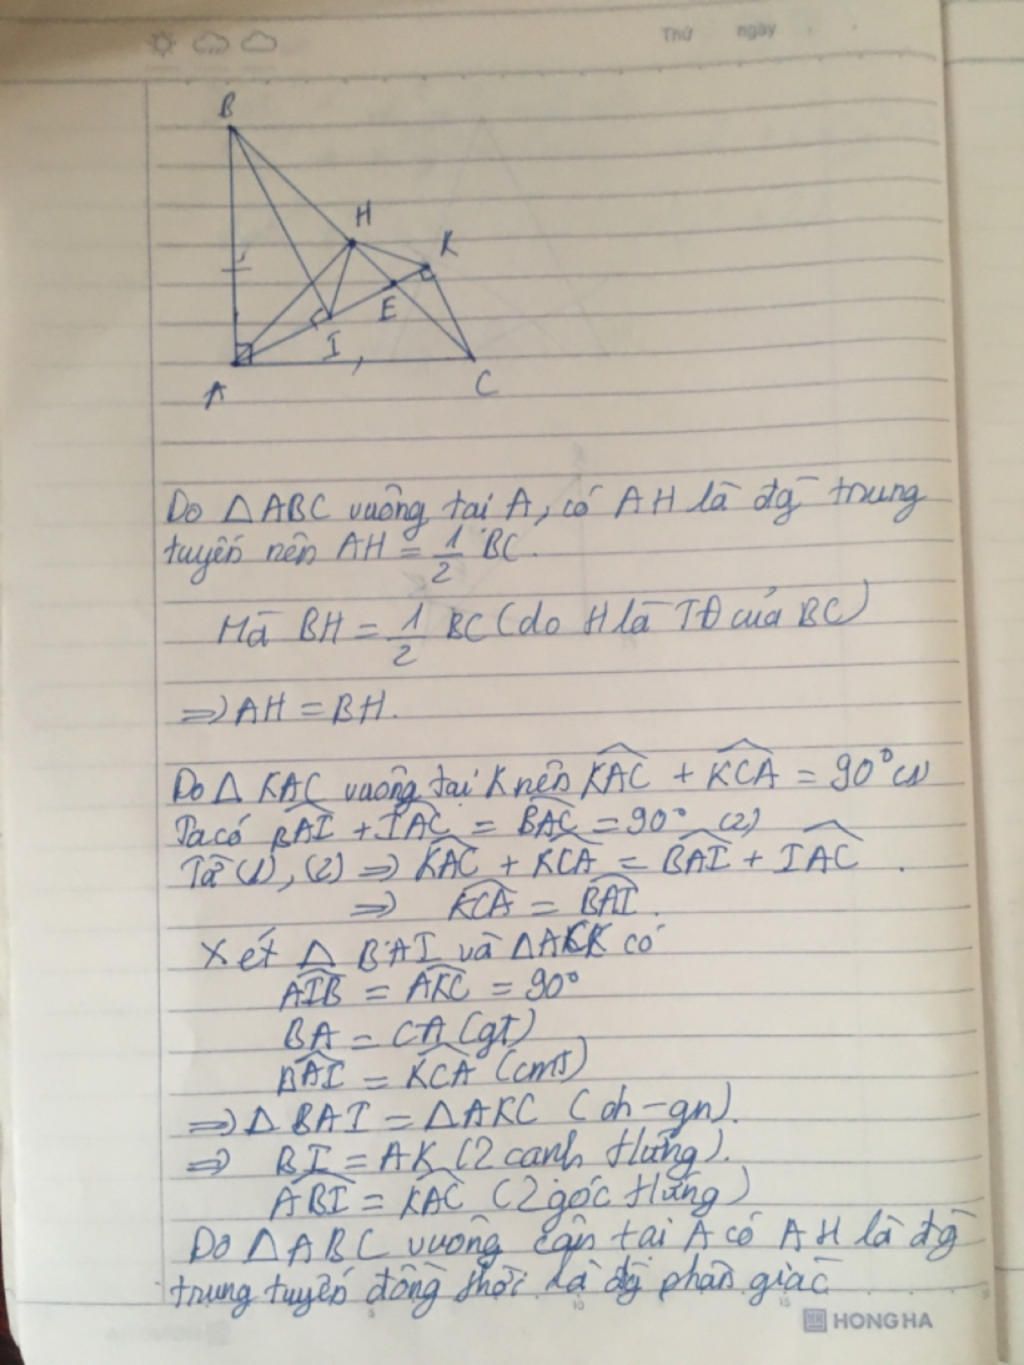 Thứ ngày
B
H
K
E
I
A
C
Do △ABC vuông tại A, có AH là đg trung
tuyến nên AH = 1/2 BC.
Mà BH = 1/2 BC (do H là TĐ của BC)
⇒ AH = BH.
Do △ KAC vuông tại K nên \widehat{KAC} + \widehat{KCA} = 90° (1)
Ta có \widehat{BAI} + \widehat{IAC} = \widehat{BAC} = 90° (2)
Từ (1), (2) ⇒ \widehat{KAC} + \widehat{KCA} = \widehat{BAI} + \widehat{IAC}.
⇒ \widehat{KCA} = \widehat{BAI}.
Xét △ BAI và △ACK có
\widehat{AIB} = \widehat{AKC} = 90°
BA = CA (gt)
\widehat{BAI} = \widehat{KCA} (cmt)
⇒ △ BAI = △AKC (ch-gn).
⇒ BI = AK (2 cạnh tứng).
\widehat{ABI} = \widehat{KAC} (2 góc tứng)
Do △ABC vuông cân tại A có AH là đg
trung tuyến đồng thời là đg phân giác
5 10 15
HONG HA